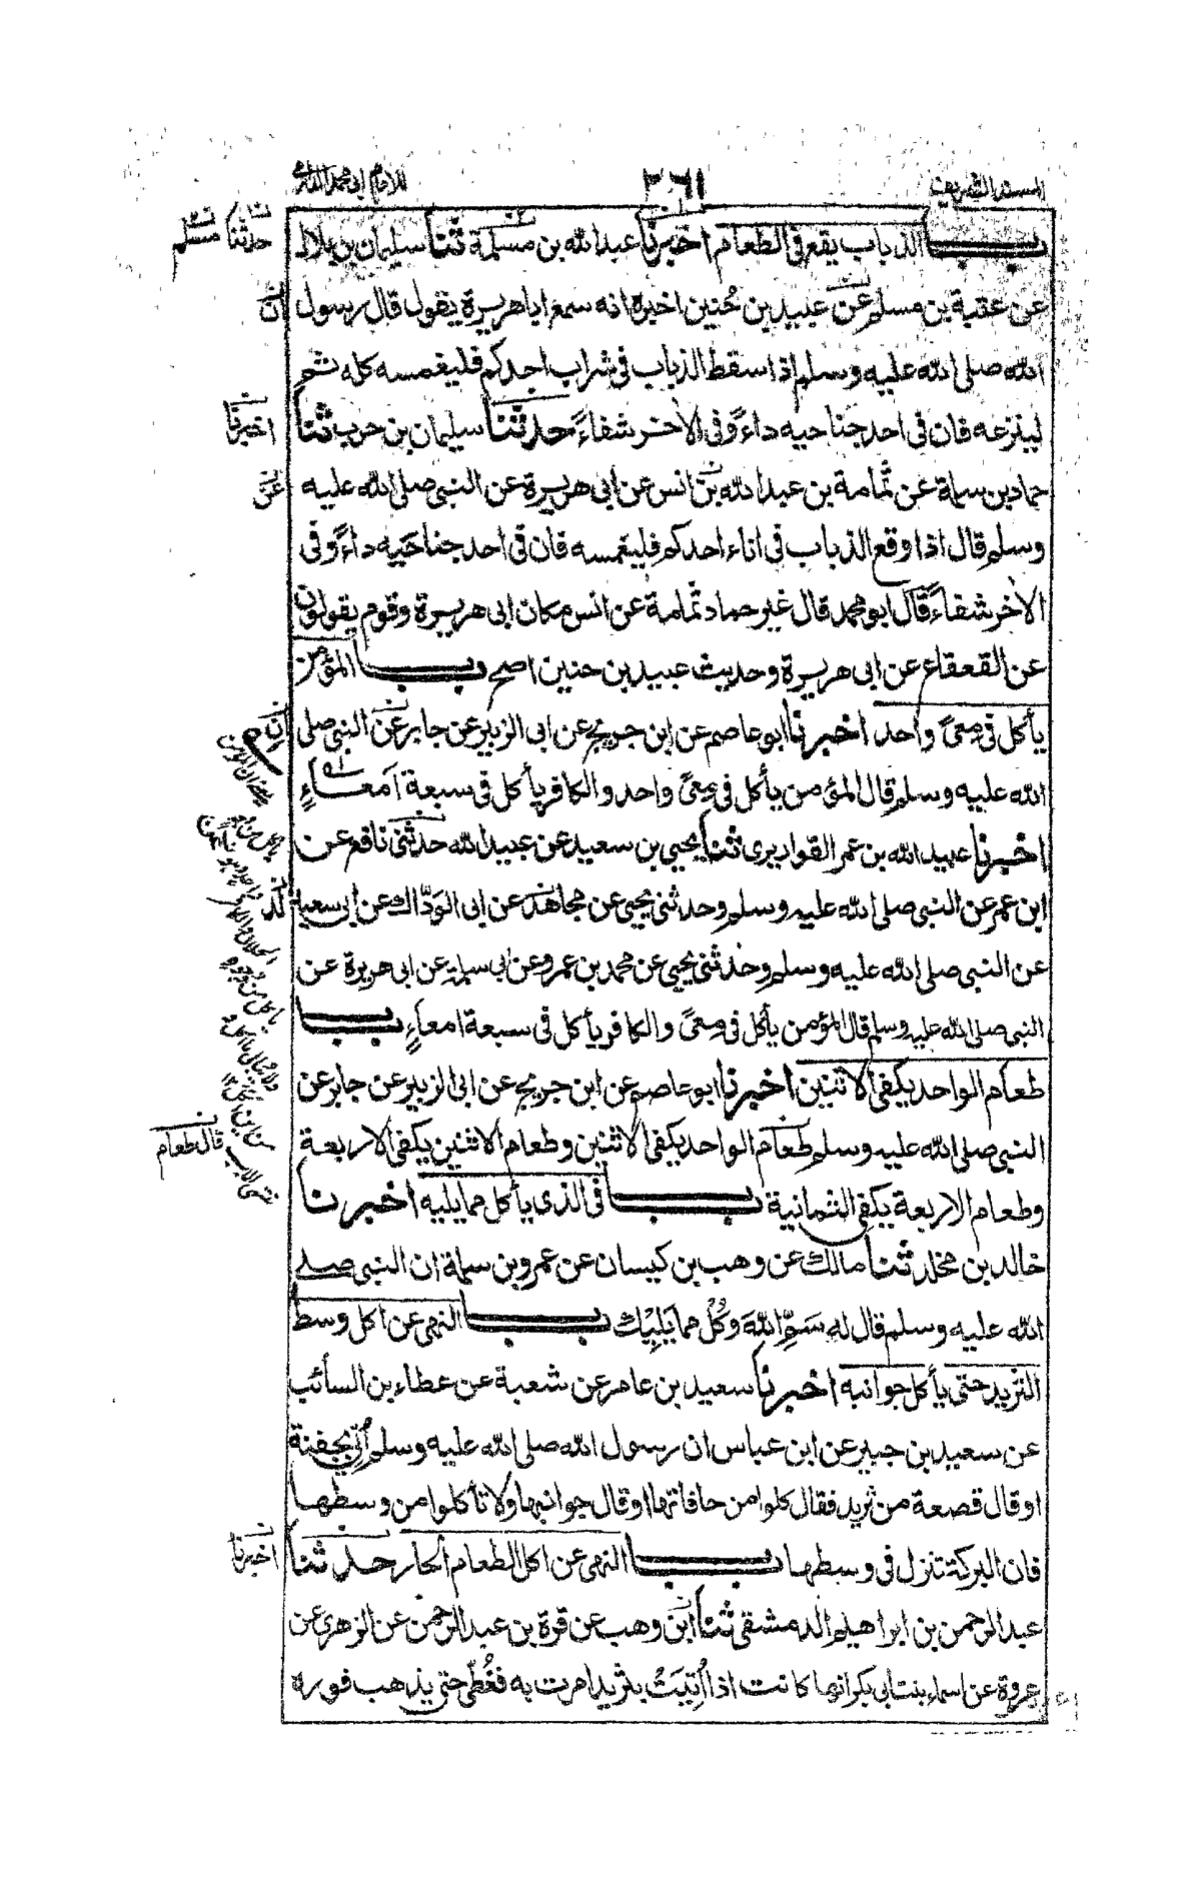 المسند الشريف
٢٦١
للامام ابى محمد الدارمى
باب الذباب يقع فى الطعام اخبرنا عبد الله بن مسلمة ثنا سليمان بن بلال
عن عقبة بن مسلم عن عبيد بن حُنين اخبره انه سمع ابا هريرة يقول قال رسول
الله صلى الله عليه وسلم اذا سقط الذباب فى شراب احدكم فليغمسه كله ثم
لينزعه فان فى احد جناحيه داءً وفى الاخر شفاءً حدثنا سليمان بن حرب ثنا
حماد بن سلمة عن ثمامة بن عبد الله بن انس عن ابى هريرة عن النبى صلى الله عليه
وسلم قال اذا وقع الذباب فى اناء احدكم فليغمسه فان فى احد جناحيه داءً وفى
الاخر شفاءً قال ابو محمد قال غير حماد ثمامة عن انس مكان ابى هريرة وقوم يقولون
عن القعقاع عن ابى هريرة وحديث عبيد بن حنين اصح باب المؤمن
يأكل فى مِعىً واحد اخبرنا ابو عاصم عن ابن جريج عن ابى الزبير عن جابر عن النبى صلى
الله عليه وسلم قال المؤمن يأكل فى مِعىً واحد والكافر يأكل فى سبعة امعاءٍ
اخبرنا عبيد الله بن عمر القواريرى ثنا يحيى بن سعيد عن عبيد الله حدثنى نافع عن
ابن عمر عن النبى صلى الله عليه وسلم وحدثنى يحيى عن مجاهد عن ابى الودّاك عن ابى سعيد
عن النبى صلى الله عليه وسلم وحدثنى يحيى عن محمد بن عمرو عن ابى سلمة عن ابى هريرة عن
النبى صلى الله عليه وسلم قال المؤمن يأكل فى مِعىً والكافر يأكل فى سبعة امعاءٍ باب
طعام الواحد يكفى الاثنين اخبرنا ابو عاصم عن ابن جريج عن ابى الزبير عن جابر عن
النبى صلى الله عليه وسلم طعام الواحد يكفى الاثنين وطعام الاثنين يكفى الاربعة
وطعام الاربعة يكفى الثمانية باب فى الذى يأكل مما يليه اخبرنا
خالد بن مخلد ثنا مالك عن وهب بن كيسان عن عمرو بن سلمة ان النبى صلى
الله عليه وسلم قال له سَمِّ اللهَ وكُلْ مما يَلِيْكَ باب النهى عن اكل وسط
الثريد حتى يأكل جوانبه اخبرنا سعيد بن عامر عن شعبة عن عطاء بن السائب
عن سعيد بن جبير عن ابن عباس ان رسول الله صلى الله عليه وسلم اُتِىَ بجفنة
او قال قصعة من ثريد فقال كلوا من حافاتها او قال جوانبها ولا تأكلوا من وسطها
فان البركة تنزل فى وسطها باب النهى عن اكل الطعام الحار حدثنا
عبد الرحمن بن ابراهيم الدمشقى ثنا ابن وهب عن قرة بن عبد الرحمن عن الزهرى عن
عروة عن اسماء بنت ابى بكر انها كانت اذا اُتِيَتْ بثريد امرت به فغُطّى حتى يذهب فوره
حدثنا مسلم
ان
اخبرنا
عن
ان
قال طعام
اخبرنا